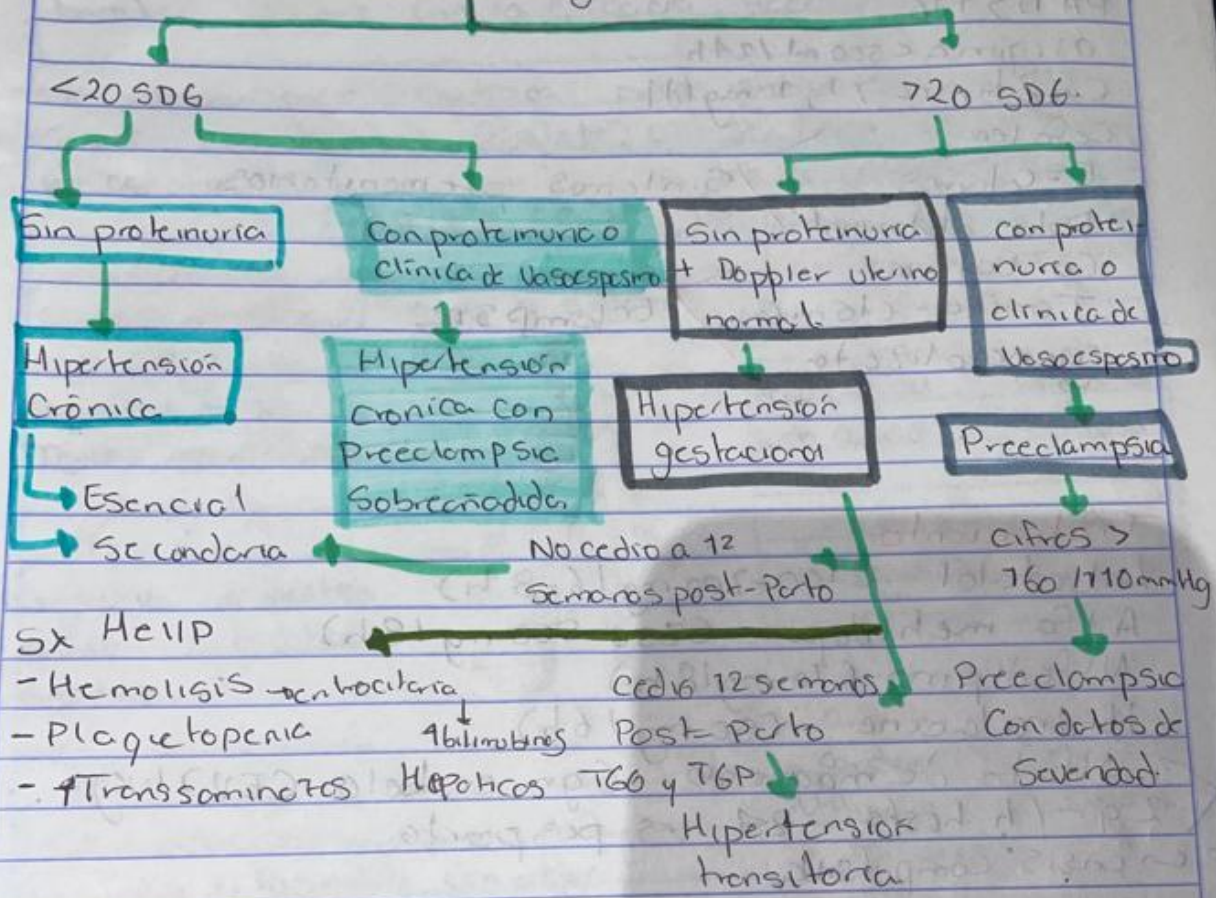 <20 SDG
>20 SDG.
Sin proteinuria
Con proteinurico o
clínica de Vasoespasmo
Sin proteinuria
+ Doppler uterino
normal.
con protei
nuria o
clínica de
Vasoespasmo
Hipertensión
Crónica
Hipertensión
Cronica con
Preeclampsia
Sobreañadida
Hipertensión
gestacional
Preeclampsia
Esencial
Secondaria
No cedio a 12
Semanas post-Parto
cifras >
160/110mmHg
Sx HellP
- Hemolisis
- Plaquetopenia
- ↑Transsaminazas Hepáticas TGO y TGP
Cedió 12 semanas
Post-Parto
Hipertensión
transitoria
Preeclampsia
Con datos de
Severidad.